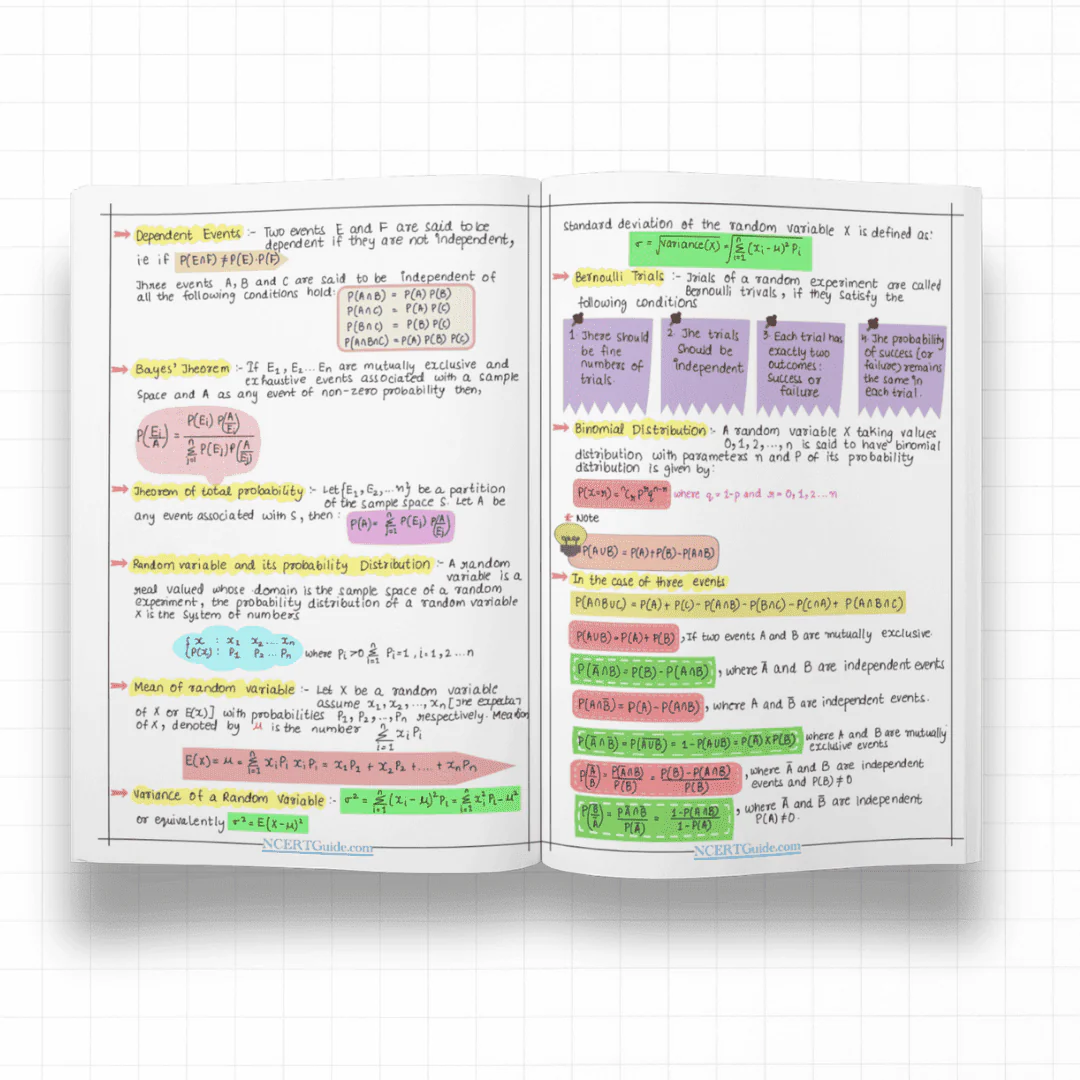 Dependent Events :- Two events E and F are said to be
dependent if they are not independent,
ie if P(E∩F) ≠ P(E)·P(F)
Three events A, B and C are said to be independent of
all the following conditions hold:
P(A∩B) = P(A) P(B)
P(A∩C) = P(A) P(C)
P(B∩C) = P(B) P(C)
P(A∩B∩C) = P(A) P(B) P(C)
Bayes' Theorem :- If E₁, E₂... En are mutually exclusive and
exhaustive events associated with a sample
Space and A as any event of non-zero probability then,
P(Ei/A) = P(Ei) P(A/Ei) / ∑ⁿⱼ₌₁ P(Ej) P(A/Ej)
Theorem of total probability :- Let {E₁, E₂,...n} be a partition
of the sample space S. Let A be
any event associated with S, then : P(A) = ∑ⁿⱼ₌₁ P(Ej) P(A/Ej)
Random variable and its probability Distribution :- A random
variable is a
real valued whose domain is the sample space of a random
experiment, the probability distribution of a random variable
X is the system of numbers
{x : x₁ x₂ ... xn
{P(x) : P₁ P₂ ... Pn
where Pi>0 ∑ⁿᵢ₌₁ Pi=1, i=1,2...n
Mean of random variable :- Let X be a random variable
assume x₁, x₂, ..., xn [The expecta
of X or E(x)] with probabilities P₁, P₂, .., Pn respectively. Mean
of X, denoted by μ is the number ∑ⁿᵢ₌₁ xi Pi
E(x) = μ = ∑ⁿᵢ₌₁ xiPi xiPi = x₁P₁ + x₂P₂ + .... + xnPn
Variance of a Random Variable :- σ² = ∑ⁿᵢ₌₁ (xi - μ)² Pi = ∑ⁿᵢ₌₁ xi² Pi - μ²
or equivalently σ² = E(X-μ)²
NCERTGuide.com
Standard deviation of the random variable X is defined as:
σ = √variance(X) = √∑ⁿᵢ₌₁ (xi - μ)² Pi
Bernoulli Trials :- Trials of a random experiment are called
Bernoulli trivals, if they satisfy the
following conditions
1. There should
be fine
numbers of
trials
2. The trials
should be
independent
3. Each trial has
exactly two
outcomes:
success or
failure
4. The probability
of success (or
failure) remains
the same in
each trial.
Binomial Distribution :- A random variable X taking values
0,1,2,...,n is said to have binomial
distribution with parameters n and P of its probability
distribution is given by:
where q = 1-p and r = 0,1,2...n
Note
P(A∪B) = P(A)+P(B)-P(A∩B)
In the case of three events
P(A∩B∪C) = P(A) + P(C) - P(A∩B) - P(B∩C) - P(C∩A) + P(A∩B∩C)
P(A∪B) = P(A) + P(B), If two events A and B are mutually exclusive.
P(Ā∩B) = P(B) - P(A∩B), where Ā and B are independent events
P(A∩B̄) = P(A) - P(A∩B), where A and B̄ are independent events.
P(Ā∩B̄) = P(A̅∪̅B̅) = 1 - P(A∪B) = P(Ā) X P(B̄) where A and B are mutually
exclusive events
P(Ā/B) = P(Ā∩B)/P(B) = P(B) - P(A∩B)/P(B), where Ā and B are independent
events and P(B) ≠ 0
where Ā and B̄ are Independent
P(A) ≠ 0.
NCERTGuide.com